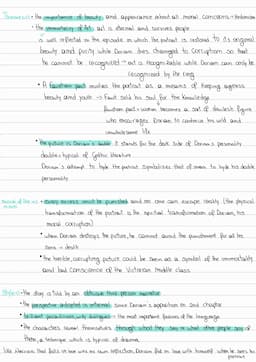 • the importance of beauty and appearance about all moral concerns → hedonism
• the immortality of art: art is eternal and survives people
is well reflected in the episode in which the portrait is restored to its original
beauty and purity while Dorian dies changed to corruption so that
he cannot be recognised → art is recognisable while Dorian can only be
recognised by the ring
• A Faustian pact makes the portrait as a means of keeping express
beauty and youth → Faust sold his soul for the knowledge
becomes a sort of devilish figure
who encourages Dorian to continue his wild and
unwholesome life
• the picture is Dorian's double: it stands for the dark side of Dorian's personality
double: typical of Gothic literature
Dorian's attempt to hide the portrait symbolises that of man to hide his double
personality
• every excess must be punished and no one can escape reality (the physical
transformation of the portrait is the spiritual transformation of Dorian, his
moral corruption)
• when Dorian destroys the picture, he cannot avoid the punishment for all his
sins → death
• the horrible, corrupting picture could be seen as a symbol of the immorality
and bad conscience of the Victorian middle class
• the story is told by an obtrusive third person narrator
• the perspective adopted is internal since Dorian's apparition in 2nd chapter
• brilliant juxtapositions, witty dialogues → the most important features of the language
• the characters reveal themselves through what they say or what other people say of
them, a technique which is typical of drama
like Narcissus that falls in love with his own reflection, Dorian fell in love with himself when he sees his
portrait